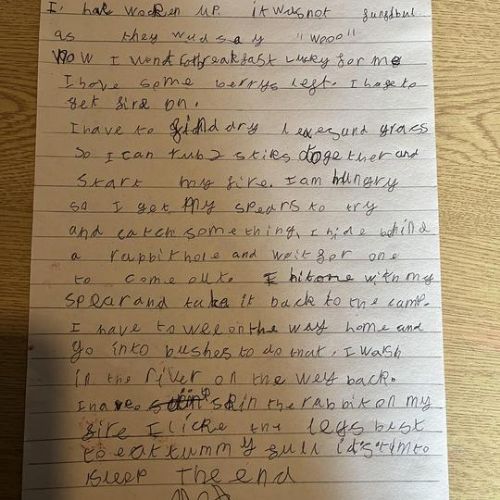 I, have wocken up. it was not
as they wud say "wooo"
now I went for breakfast lucky for me
I have some berrys left. I have to
get fire on.
I have to find dry leves and grass
so I can rub 2 stiks together and
start my fire. I am hungry
so I get my spears to try
and catch something, I hide behind
a rabbit hole and wait for one
to come out. I hit one with my
spear and take it back to the camp.
I have to wee on the way home and
go into bushes to do that. I wash
in the river on the wey back.
I have skin the rabbit on my
fire I licke the legs best
to eat tummy full
sleep The end